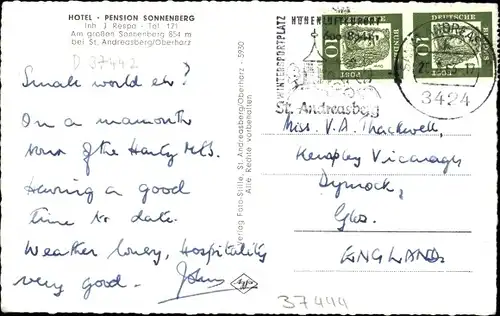 HOTEL - PENSION SONNENBERG
Inh. J. Respa - Tel. 171
Am großen Sonnenberg 854 m
bei St. Andreasberg/Oberharz
D 37442
Small world eh?
In a mamouth
tour of the Harty Mts.
Having a good
time to date.
Weather lovely, Hospitality
very good. John
Verlag Foto-Stille, St. Andreasberg/Oberharz - 5930
Alle Rechte vorbehalten
WINTERSPORTPLATZ
HÖHENLUFTKURORT
St. Andreasberg
DEUTSCHE
10
DEUTSCHE
10
3424
Miss. V.A. Thackwell,
Kempley Vicarage
Dymock,
Glos.
ENGLAND.
37444